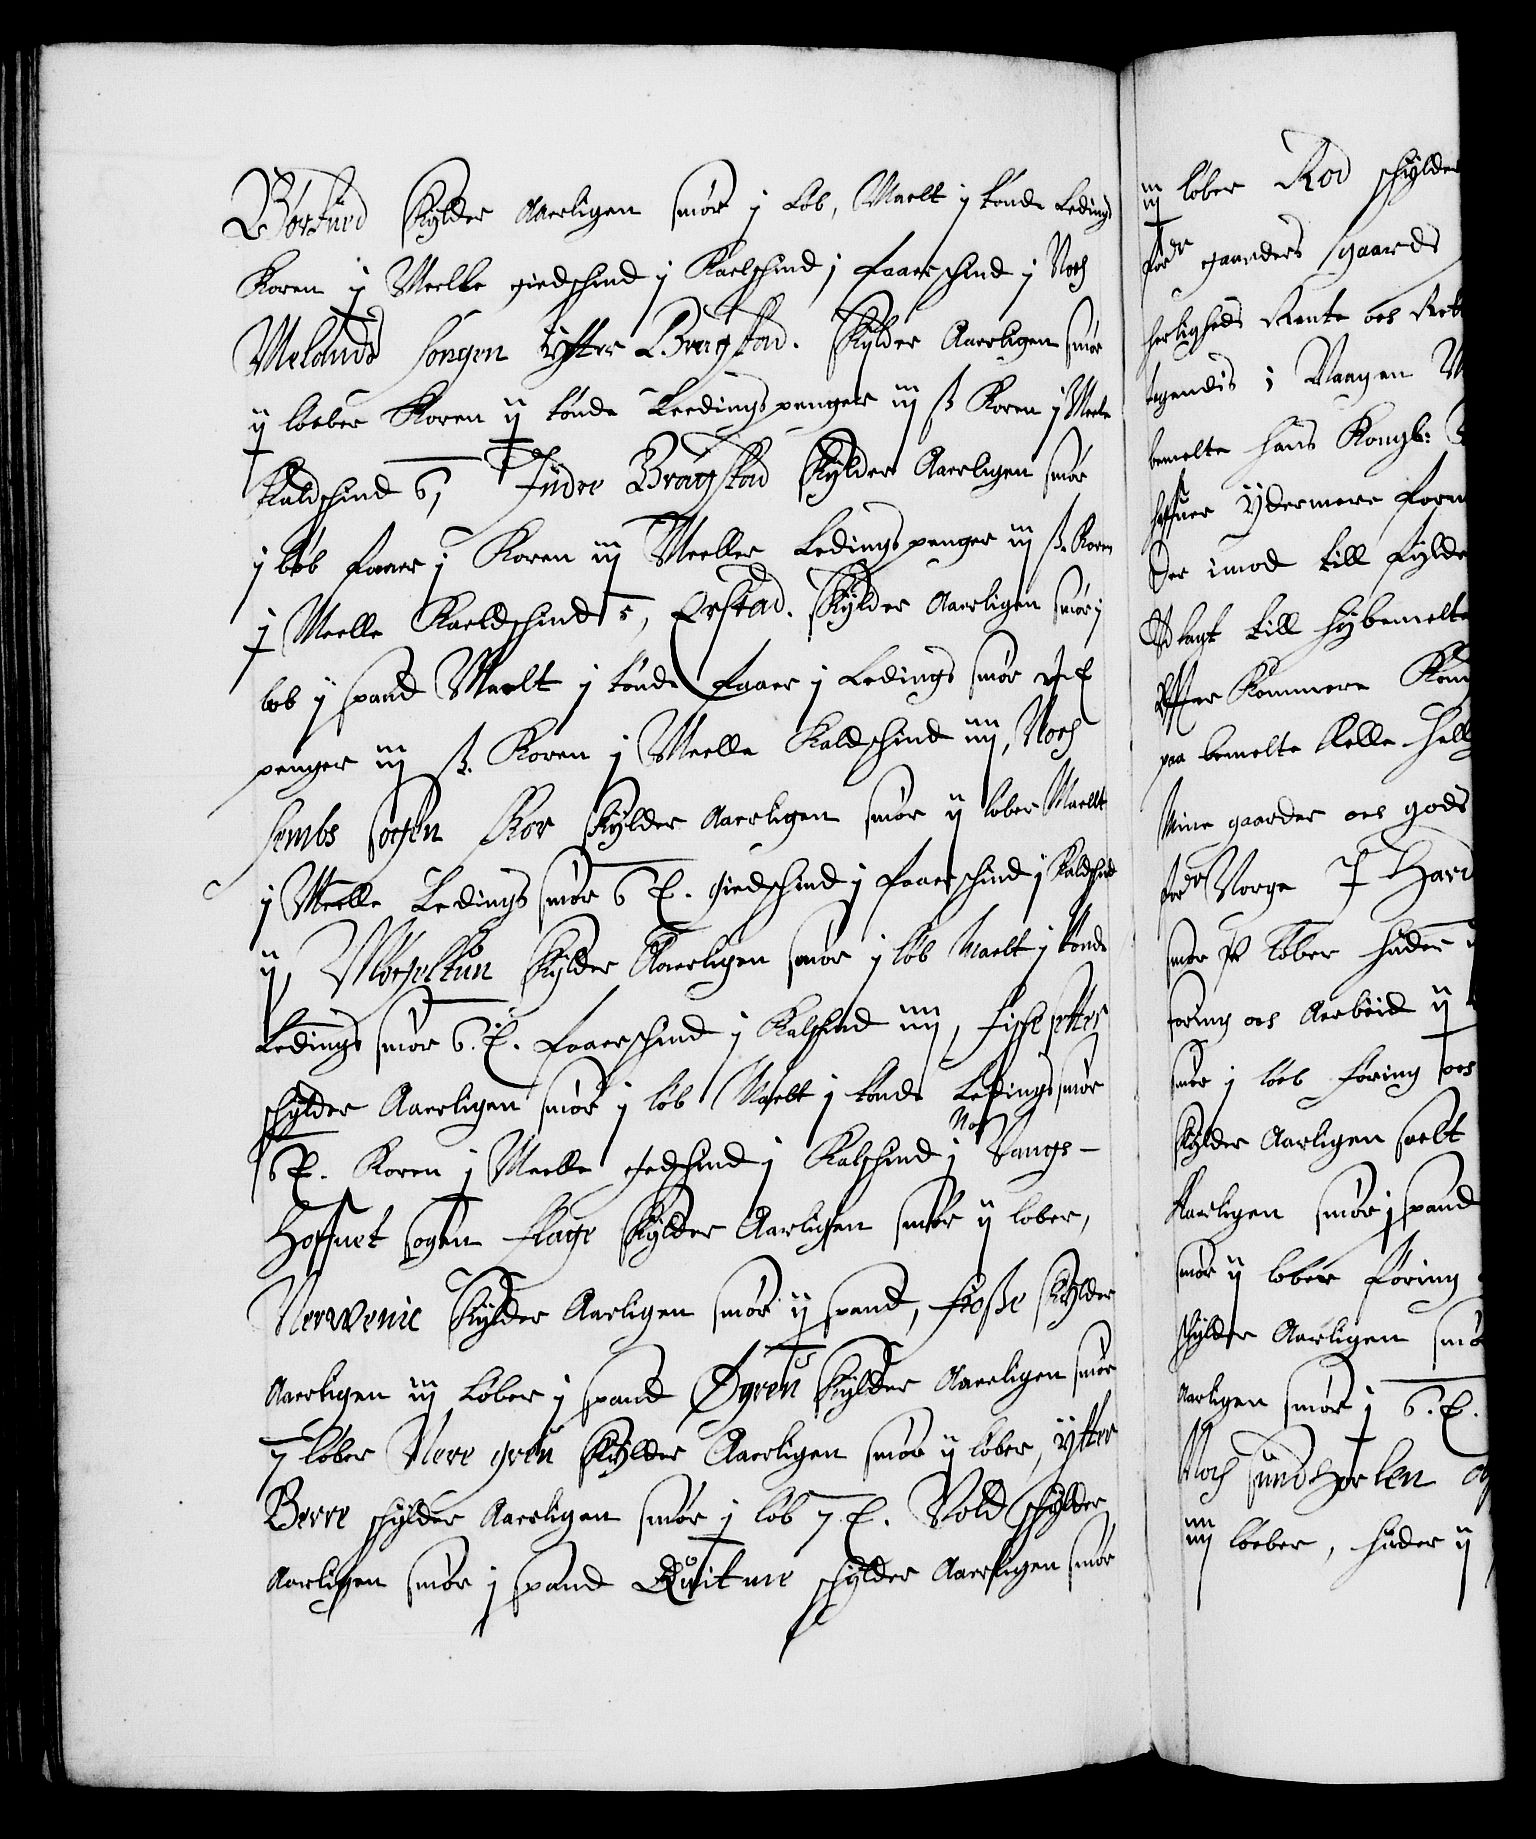 Børtued Skylder Aaerligen smør j Løb, Maelt j tønde Ledings
Koren ij Meelle giedschind j Kaelschind j faarschind j Noch
Melands Songen Ytter Bragstad. Skylder Aaerligen smør
ij løeber Koren ij tønde Leedingspenger iij ß Koren j Meele
Kaldschind 6, Indre Bragstad Skylder Aaerligen smør
j løb faaer j Koren iij Meeller Ledingspenger iij ß. Koren
j Meelle Kaeldschind 5, Erstad. Skylder Aaerligen smør j
løb ij spand Maelt j tønde faaer j Ledings smør
penger iij ß. Koren j Meelle Kaldschind iiij, Noch
Sembs sogen Kor Skylder Aaerligen smør ij løber Maelt
j Meelle Ledings smør 6 giedschind j faaerschind j Kaldschind
ij, Møcheltun Skylder Aaerligen smør j løb Maelt j tønde
Ledings smør 6. faaerschind j Kalschind iiij, Fische setter
schylder Aaerligen smør j løb Maelt j tønde Ledings smør
6 Koren j Meelle giedschind j Kalschind j Noch Vangs-
Hoffuet sogen Flage Skylder Aarligen smør ij løber,
Nerwenie Skylder Aarligen smør ij spand, Froße Skylder
Aaerligen iij Løber j spand Øgren Skylder Aaerligen smør
7 løber Nere gren Skylder Aaerligen smør ij løber, Ytter
Berre schylder Aaerligen smør j løb 7 Vold schylder
Aarligen smør j spand Quitme schylder Aaerligen smør
iij løber Rod schylder
forder gaarders gaards
herligheds Rente och Rett
tagendis i Naagen M
bemelte Hans Kongl:
haffuer Ydermere foren
der imod till fylde
Vdlagt till høybemelte
Effter Kommere Kon
paa bemelte Helle Hellig
Mine gaarder och gods
forder Norge Hard
smør løber huder
føring och Aerbeid ij
smør j løeb føring och
Skylder Aarligen saelt
Aarligen smør j spand
smør ij løber føring
schylder Aarligen smør
Aarligen smør j 6.
Noch sundhorlen
iiij løeber, huder ij